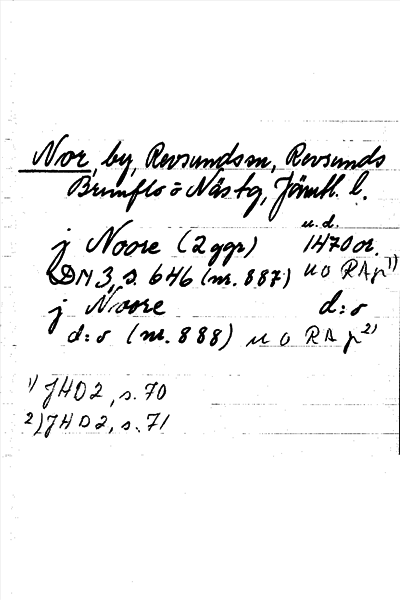 Nor, by, Revsunds sn, Revsunds
Brunflo o Näs tg, Jämtl. l.
u. d.
j Noore (2 ggr) 1470 or.
DN 3, s. 646 (nr. 887) u o RAp 1)
j Noore d:o
d:o (nr. 888) u o RAp 2)
1) JHD2, s. 70
2) JHD2, s. 71